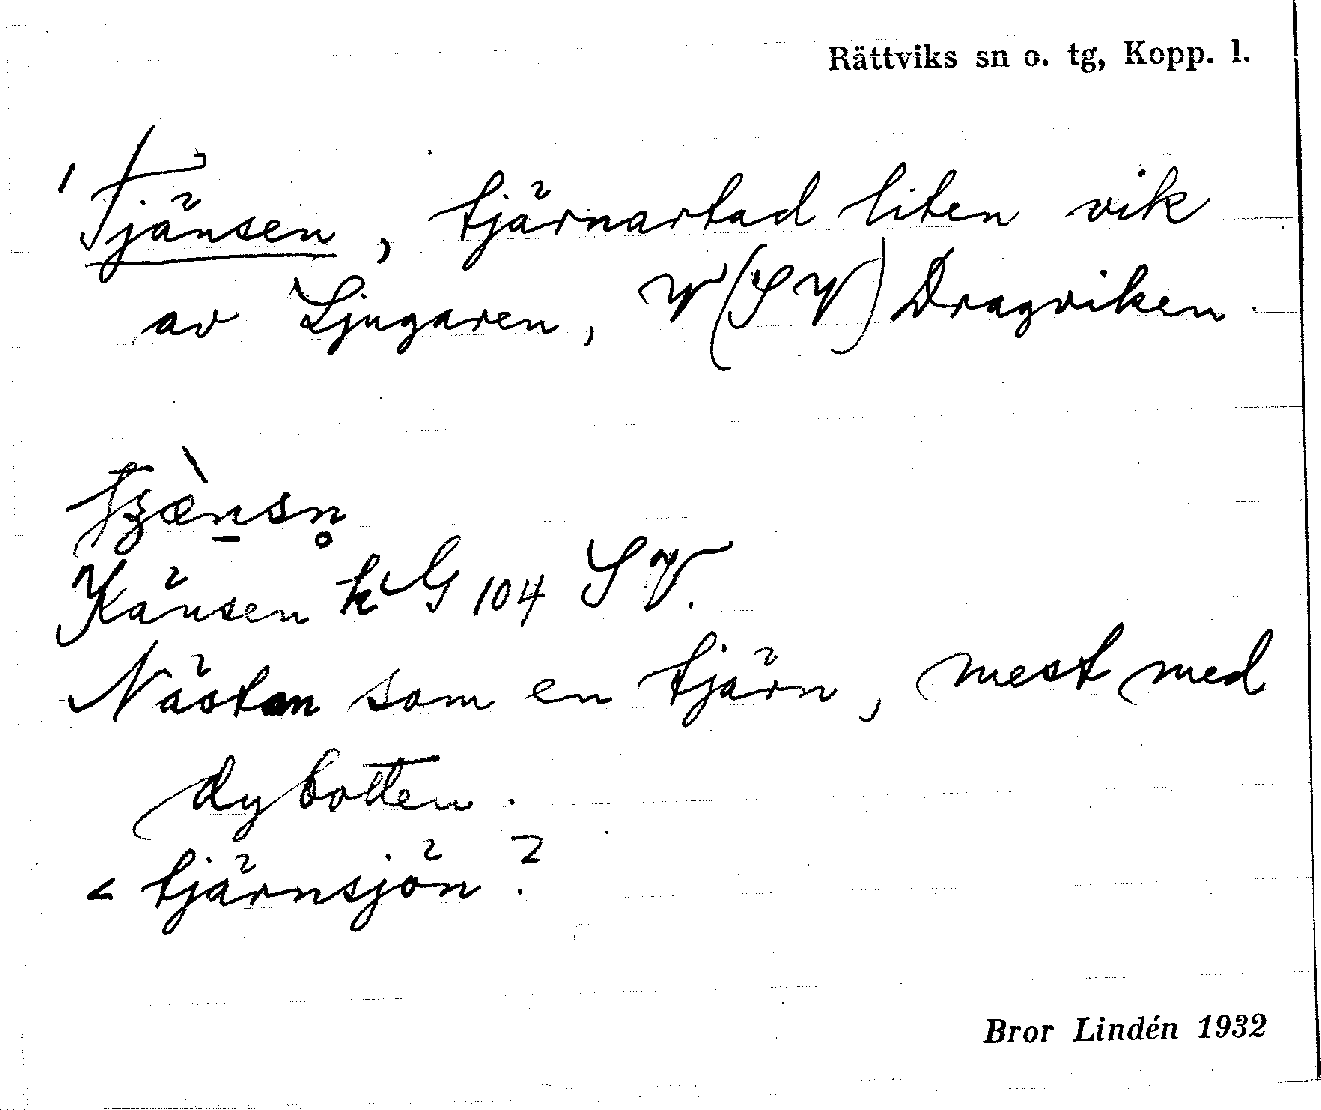 Rättviks sn o. tg, Kopp. l.
'Tjänsen, tjärnartad liten vik
av Ljugaren, V (SV) Dragviken.
Känsen k G 104 SV.
Nästan som en tjärn, mest med
dybotten.
< tjärnsjön?
Bror Lindén 1932